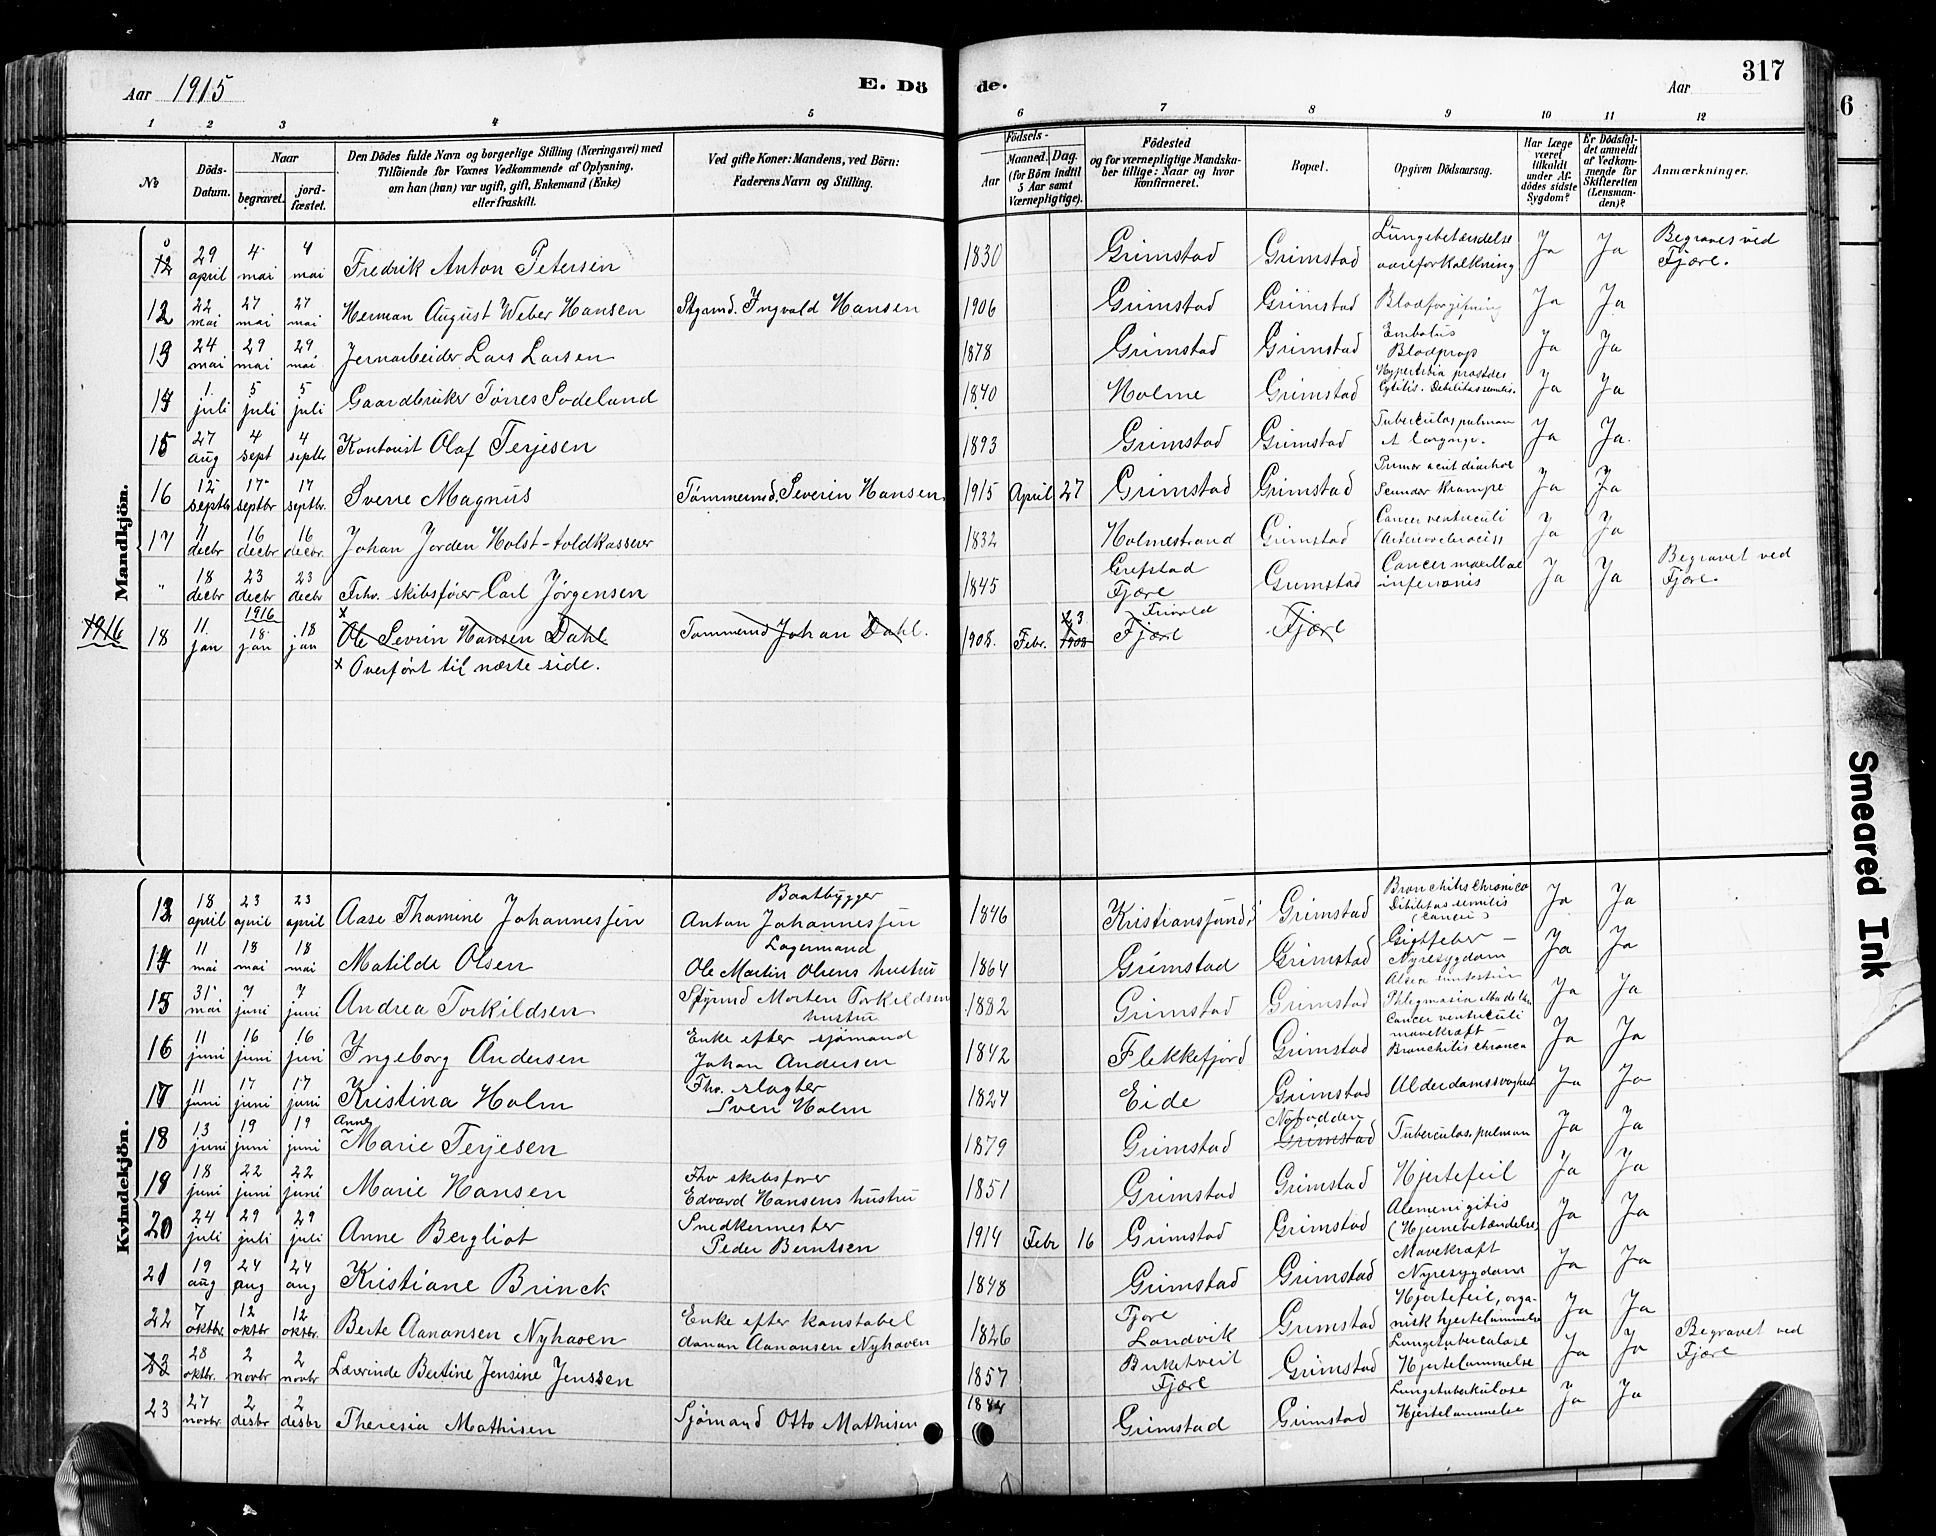 Aar 1915
E. Dö de.
Aar 317
6
1 2 3 4 5 6 7 8 9 10 11 12
No
Döds-Datum.
Naar
begravet.
jord-fæstet.
Den Dödes fulde Navn og borgerlige Stilling (Næringsvei) med
Tilföiende for Voxnes Vedkommende af Oplysning,
om han (hun) var ugift, gift, Enkemand (Enke)
eller fraskilt.
Ved gifte Koner: Mandens, ved Börn:
Faderens Navn og Stilling.
Födsels-
Aar
Maaned. Dag.
(for Börn indtil
5 Aar samt
Værnepligtige).
Födested
og for værnepligtige Mandska-
ber tillige: Naar og hvor
konfirmeret.
Bopæl.
Opgiven Dödsaarsag.
Har Læge
været
tilkaldt
under Af-
dödes sidste
Sygdom?
Er Dödsfal-
det anmeldt
af Vedkom-
mende for
Skifteretten
(Lensman-
den)?
Anmærkninger.
Mandkjön.
12 29 april 4 mai 4 mai Fredrik Anton Petersen 1830 Grimstad Grimstad Lungebetændelse aareforkalkning Ja Ja Begraves ved Fjære.
12 22 mai 27 mai 27 mai Herman August Weber Hansen Stgamd. Ingvald Hansen 1906 Grimstad Grimstad Blodforgiftning Ja Ja
13 24 mai 29 mai 29 mai. Jernarbeider Lars Larsen 1878 Grimstad Grimstad Embolus Blodprop Ja Ja
14 1. juli 5 juli 5 juli Gaardbruker Tönnes Sodeland 1840 Holme Grimstad Cytitis. Debilitas senilis. Ja Ja
15 27 aug 4 sept 4 septbr Kontorist Olaf Terjesen 1893 Grimstad Grimstad Tuberculos pulmon et larynge. Ja Ja.
16 12 septbr 17 septbr 17 septbr. Sverre Magnus Tömmermd. Severin Hansen. 1915 April 27 Grimstad Grimstad Primær acut diarhoe Secundær Krampe Ja Ja
17 11 decbr 16 decbr 16 decbr. Johan Jorden Holst - toldkasserer 1832 Holmestrand Grimstad Cancer ventriculi (Arteriosclerosis) Ja Ja
" 18 decbr 23 decbr 23 decbr Frhv. skibsfører Carl Jørgensen 1845 Grefstad Fjære Grimstad Cancer maxillae inferioris Ja Ja Begravet ved Fjære.
1916 18 11. jan 1916 18 jan 18 jan x Ole Sevrin Hansen Dahl Tømmermd Johan Dahl. 1908. Febr. 23 1908 Frivold Fjære Fjære
x Overført til næste side.
Kvindekjön.
13 18 april 23 april 23 april Aase Thomine Johannessen Baatbygger Anton Johannessen 1846 Kristianssund Grimstad Bronchitis chronica Debilitas senilis (Cancer) Ja Ja
14 11 mai 18 mai 18 mai Matilde Olsen Lagermand Ole Martin Olsens hustru 1864 Grimstad Grimstad Gigtfeber - Nyresygdom Ja Ja
15 31 mai 7 juni 7 juni Andrea Torkildsen Styrmd Morten Torkildsen hustru 1882 Grimstad Grimstad Phlegmasia alba dolens Ja Ja
16 11 juni 16 juni 16 juni Ingeborg Andersen Enke efter sjømand Johan Andersen 1842 Flekkefjord Grimstad Cancer ventriculi mavekræft - Bronchitis chronica Ja Ja
17 11 juni 17 juni 17 juni Kristina Holm Fhv. slagter Sven Holm 1824 Eide Grimstad Alderdomssvaghet Ja Ja
18 13 juni 19 juni 19 juni Anne Marie Terjesen 1879 Grimstad Notodden Grimstad Tuberculos. pulmon Ja Ja
19 18 juni 22 juni 22 juni Marie Hansen Fhv skibsfører Edvard Hansens hustru 1851 Grimstad Grimstad Hjertefeil Ja Ja
20 24 juli 29 juli 29 juli Anne Bergliot Snedkermester Peder Berntsen 1914 Febr 16 Grimstad Grimstad (Hjernebetændelse) Ja Ja
21 19 aug 24 aug 24 aug Kristiane Brinck 1848 Grimstad Grimstad Mavekræft Nyresygdom Ja Ja
22 7 oktbr. 12 oktbr 12 oktbr. Berte Aanonsen Nyhaven Enke efter konstabel Aanon Aanonsen Nyhaven 1826 Fjære Landvik Grimstad Hjertefeil, organisk hjertelammelse Ja Ja
23 28 oktbr. 2 novbr 2 novbr Laverinde Bertine Jensine Jenssen 1857 Birketveit Fjære Grimstad Lungetuberculose Hjertelammelse Ja Ja Begravet ved Fjære
23 27 novbr. 2 desbr 2 desbr Theresia Mathisen Sjømand Otto Mathisen Grimstad Grimstad Lungetuberkulose Hjertelammelse Ja Ja
Smeared Ink